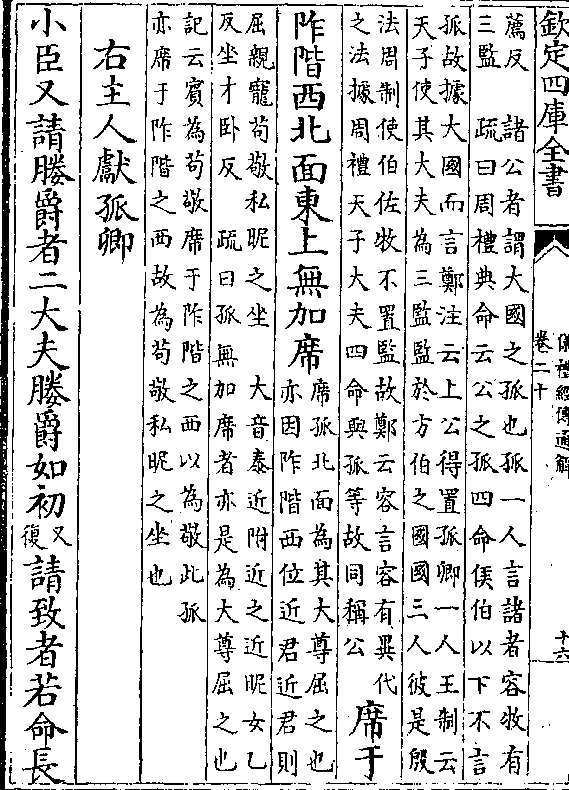 欽定四庫全書
儀禮經傳通解
卷二十
十六
薦反　諸公者謂大國之孤也孤一人言諸者容牧有
三監　疏曰周禮典命云公之孤四命侯伯以下不言
孤故據大國而言鄭注云上公得置孤卿一人王制云
天子使其大夫為三監監於方伯之國國三人彼是殷
法周制使伯佐牧不置監故鄭云容言容有異代
之法據周禮天子大夫四命與孤等故同稱公
席于
阼階西北面東上無加席
席孤北面為其大尊屈之也
亦因阼階西位近君近君則
屈親寵苟敬私昵之坐　大音泰近附近之近昵女乙
反坐才卧反　疏曰孤無加席者亦是為大尊屈之也
記云賓為苟敬席于阼階之西以為敬此孤
亦席于阼階之西故為苟敬私昵之坐也
右主人獻孤卿
小臣又請媵爵者二大夫媵爵如初
又
復
請致者若命長